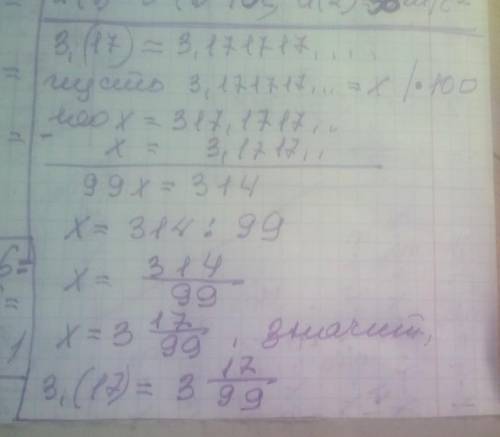 3,(17) = 3,171717,...
пусть 3,171717... = x |·100
100x = 317,1717...
x = 3,1717..
99x = 314
x = 314 : 99
x = 314/99
x = 3 17/99, значит,
3,(17) = 3 17/99